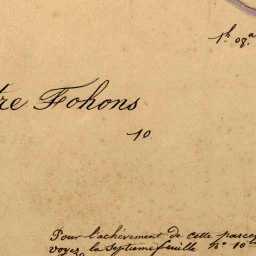 1h. 03a
tre Fohons
10
Pour l'achèvement de cette parce
voyez la Septieme feuille N° 10